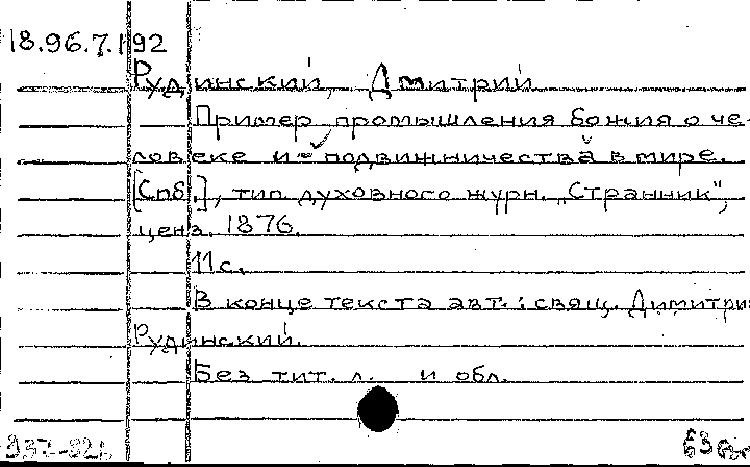 18.96.7.192
Рудинский, Дмитрий
Пример промышления божия о че-
ловеке и подвижничества в мире.
[Спб.], тип. духовного журн. „Странник",
ценз. 1876.
11 с.
В конце текста авт.: свящ. Димитрий
Рудинский.
Без тит. л. и обл.
63